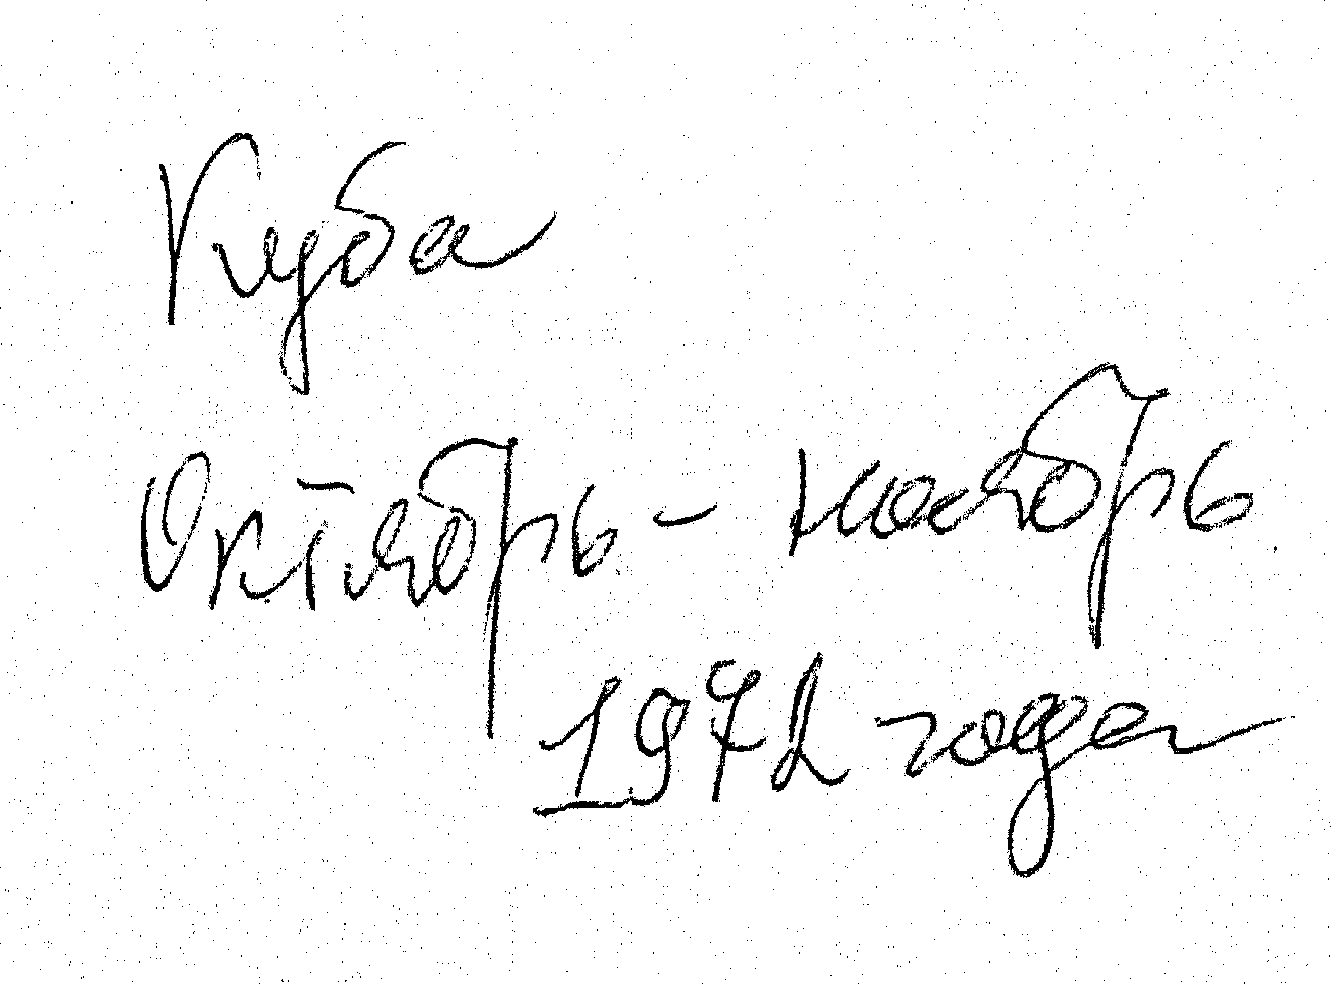 Куба
Октябрь - ноябрь
1972 года